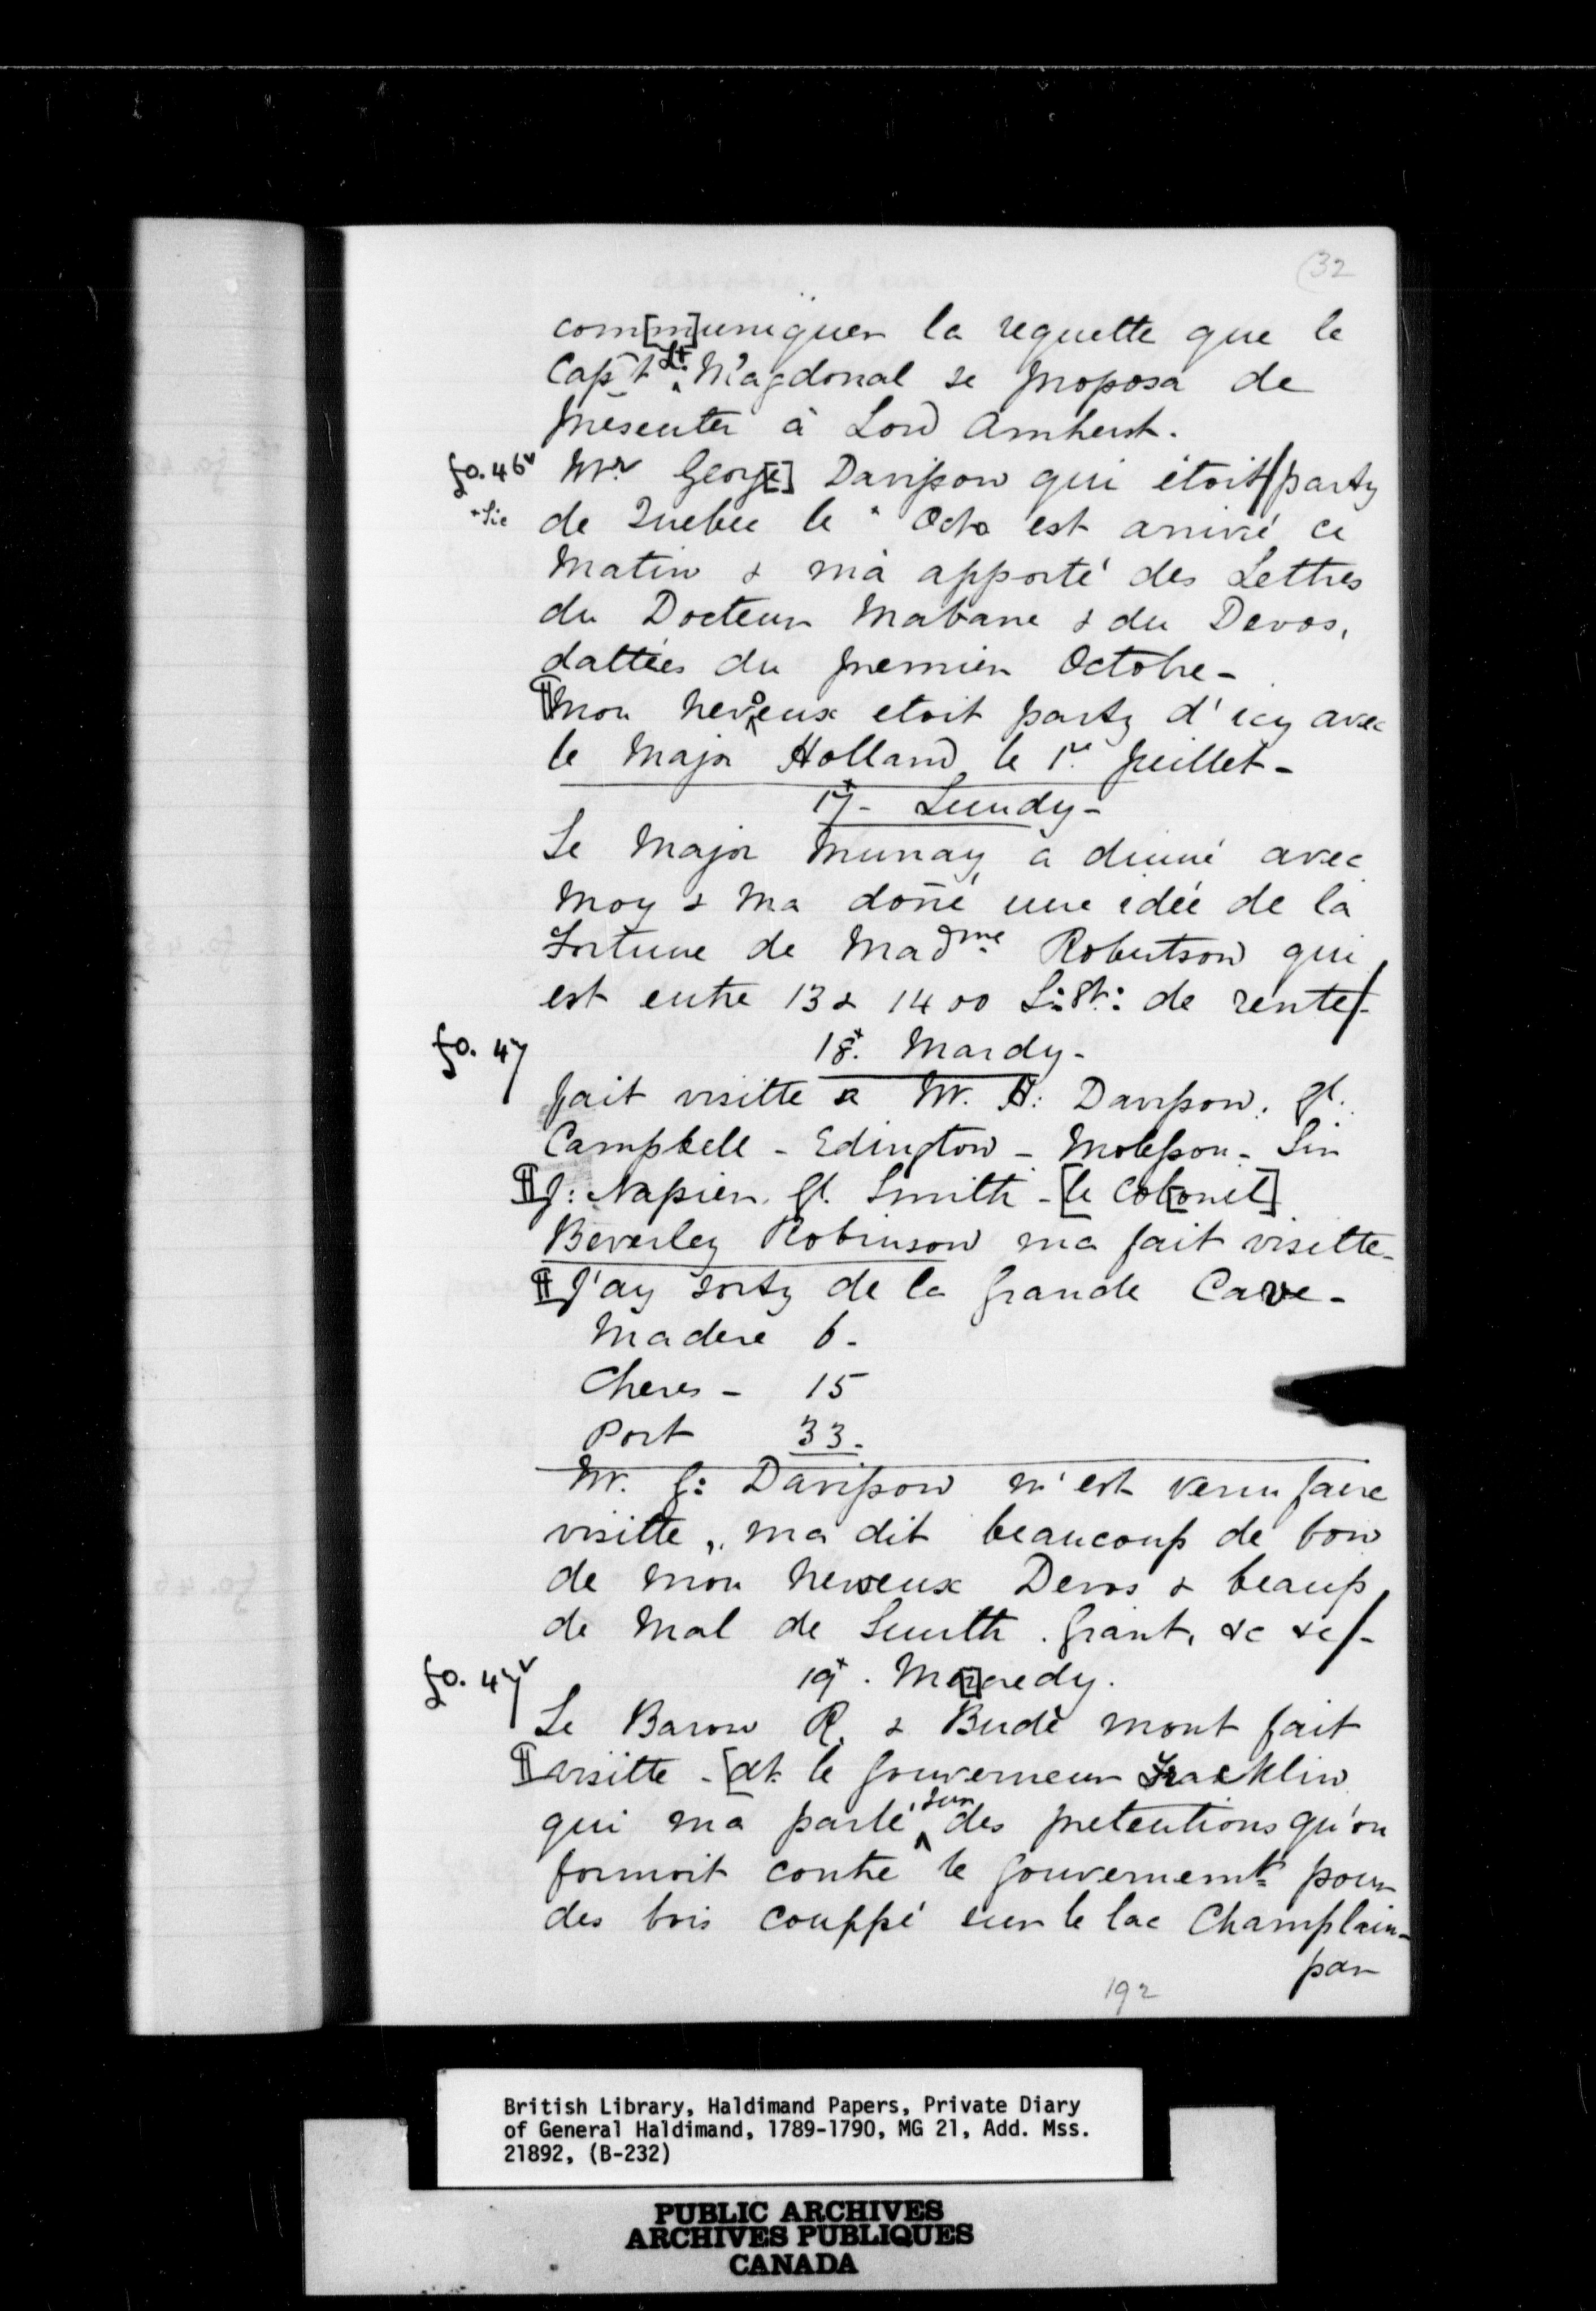 (32
com[m]uniquer la requette que le
Capt Lt. Magdonal se proposa de
présenter à Lord Amherst.
fo. 46v Mr George[] Davisson qui étoit/party
+sic de Quebec le + Octo est arrivé ce
Matin & m'a apporté des Lettres
du Docteur Mabane & du Devos,
dattées du premier Octobre -
¶ mon neveoux etoit party d'icy avec
le Major Holland le 1r. Juillet -
17 - Lundy -
Le Major Murray a dinné avec
moy & ma doñé une idée de la
fortune de Madme Robertson qui
est entre 13 & 1400 L: St: de rente/-
fo. 47 18. Mardy -
fait visitte a Mr. H: Davisson. Gl.
Campbell - Edington - Molesson - Sir
¶ J: Napier. Gl. Smith - [le Col[onel]
Beverley Robinson ma fait visitte -
¶ J'ay sorty de la Grande Cave -
Madere 6 -
Cheres - 15
Port 33 -
Mr. G: Davisson m'est venu faire
visitte, ma dit beaucoup de bon
de mon neveux Devos & beaup
de mal de Smith. Grant, &c &c/-
fo. 47v 19. Me[]credy.
Le Baron R. & Budè mont fait
¶ visitte - [et le Gouverneur Fracklin
qui ma parlé sur des pretentions qu'on
formoit contre le Gouvernemt pour
des bois couppé sur le lac Champlain -
par
192
British Library, Haldimand Papers, Private Diary
of General Haldimand, 1789-1790, MG 21, Add. Mss.
21892, (B-232)
PUBLIC ARCHIVES
ARCHIVES PUBLIQUES
CANADA